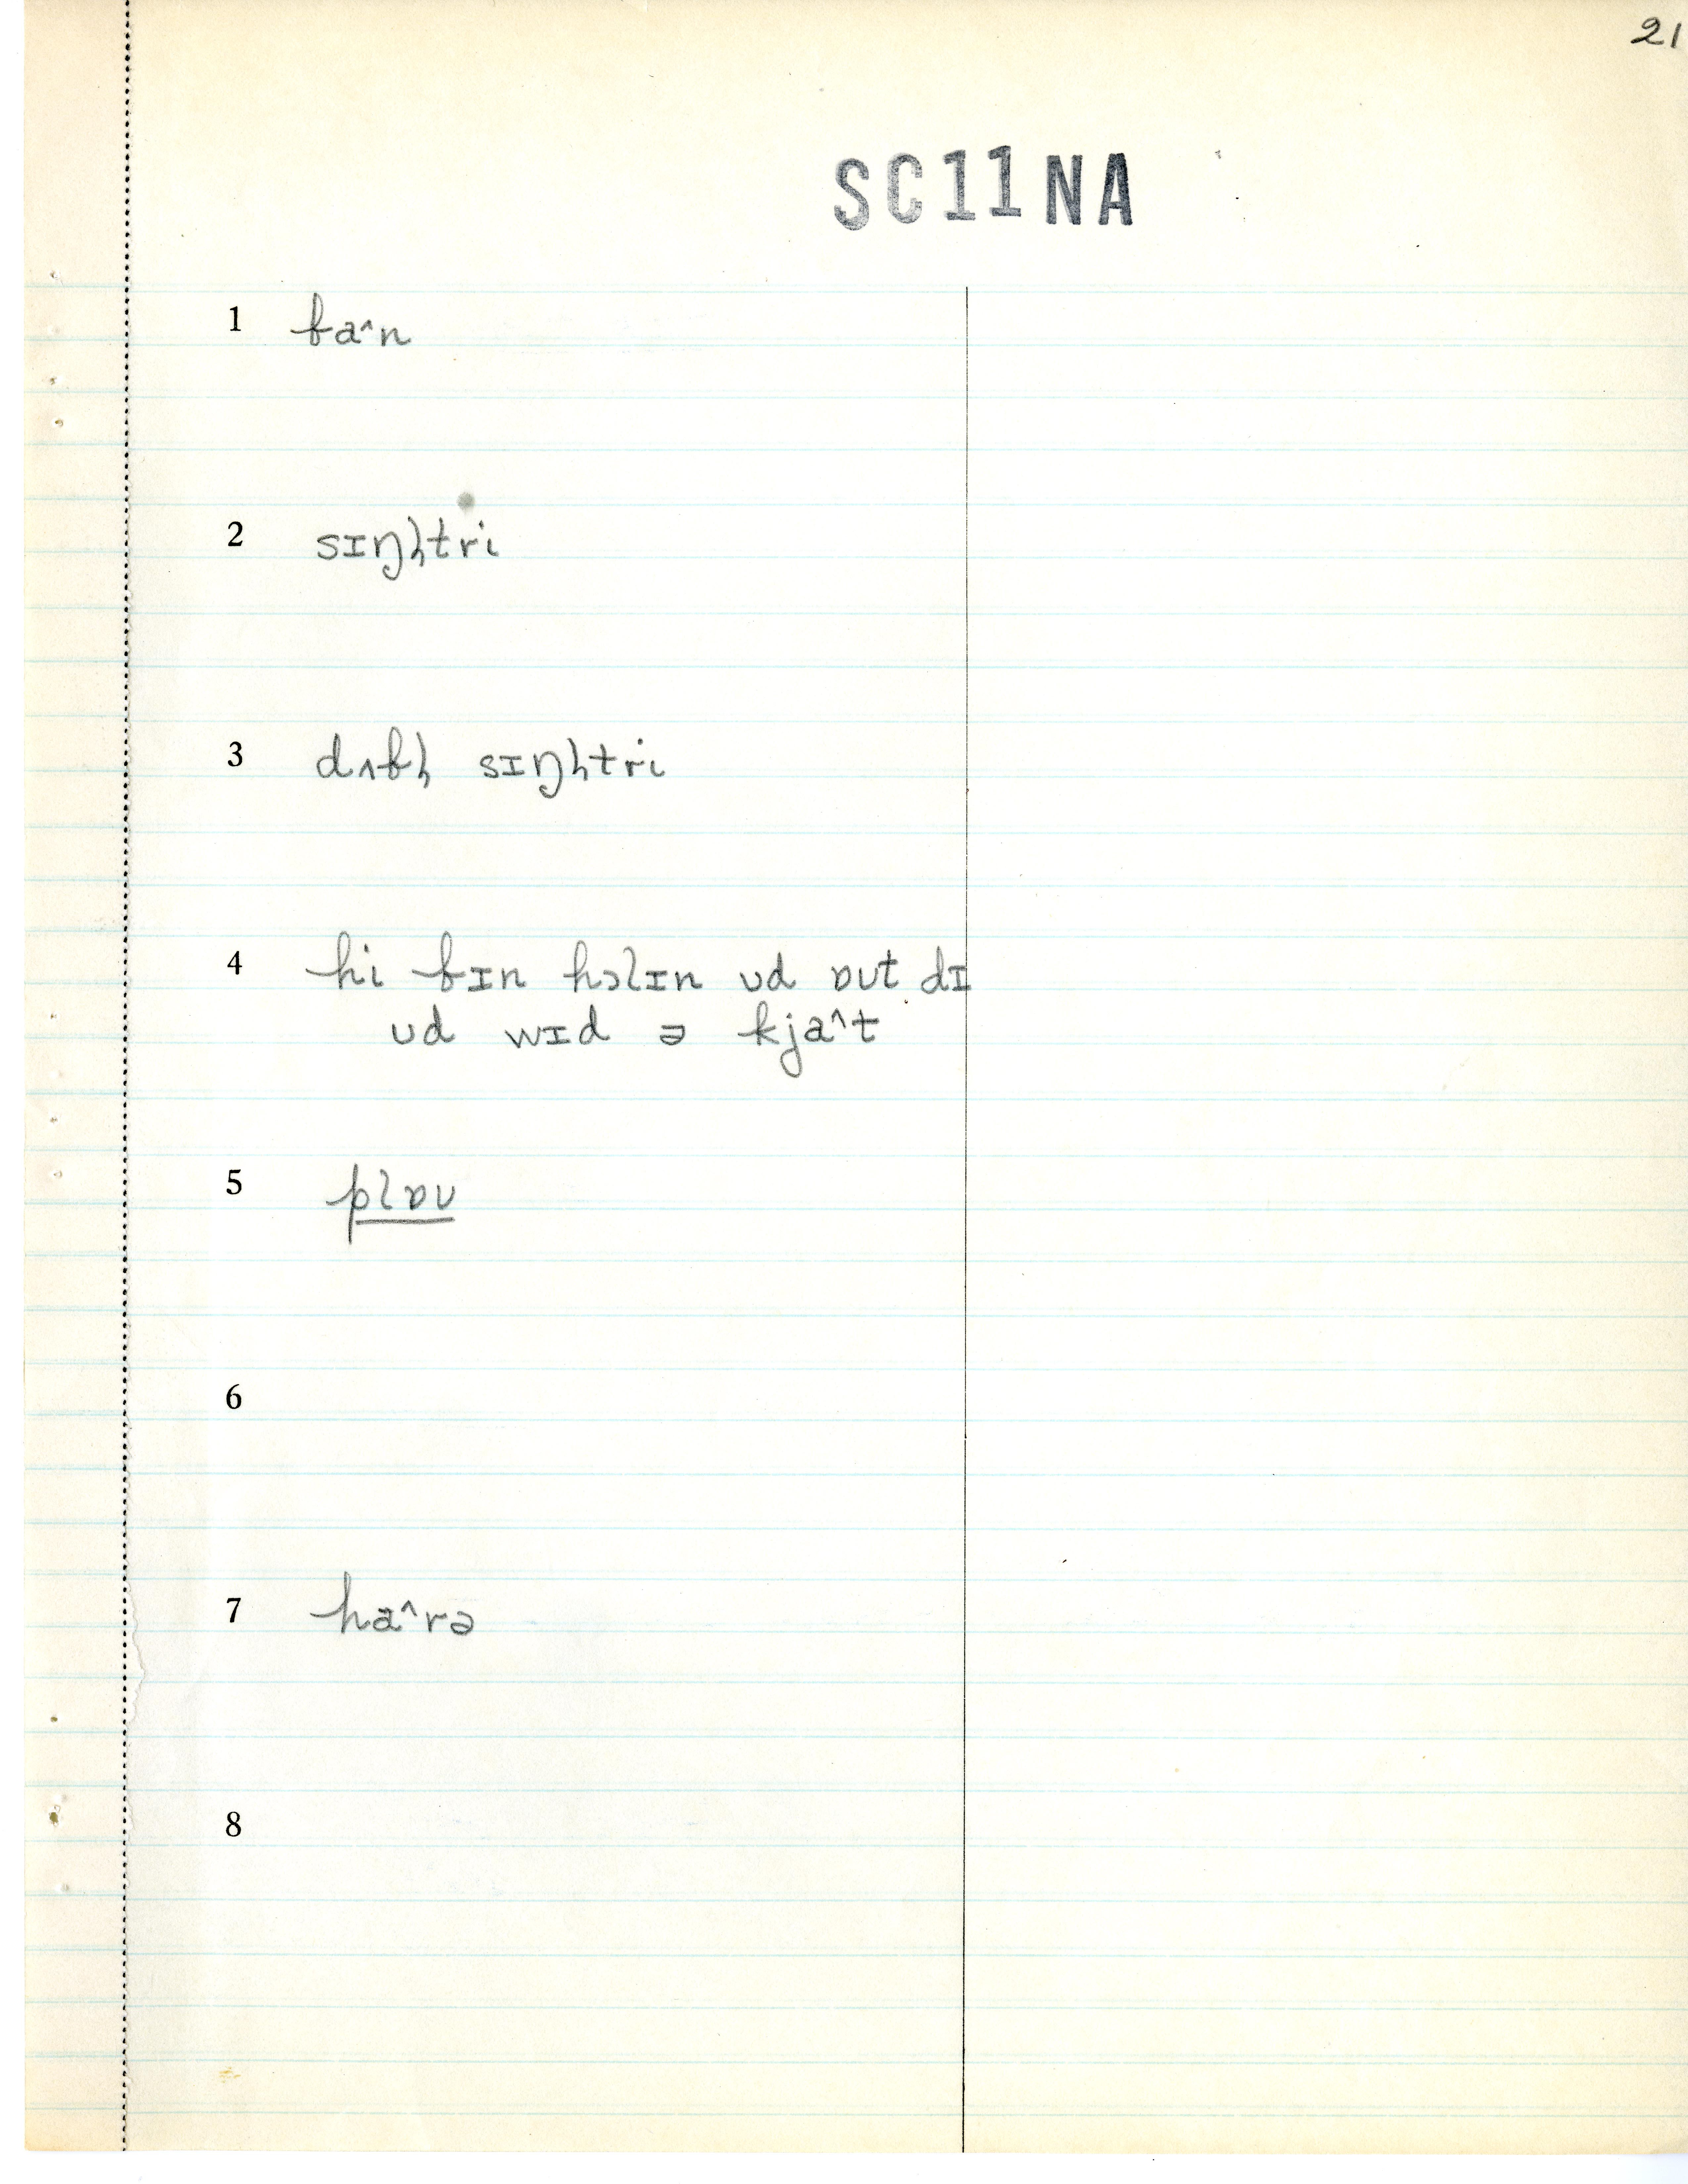 21
SC11NA
1 ba^n
2 sɪŋl̩tri
3 dʌbl̩ sɪŋl̩tri
4 hi bɪn hɔlɪn ʊd ɒʊt dɪ
ʊd wɪd ə kja^t
5 plɒʊ
6
7 ha^rə
8